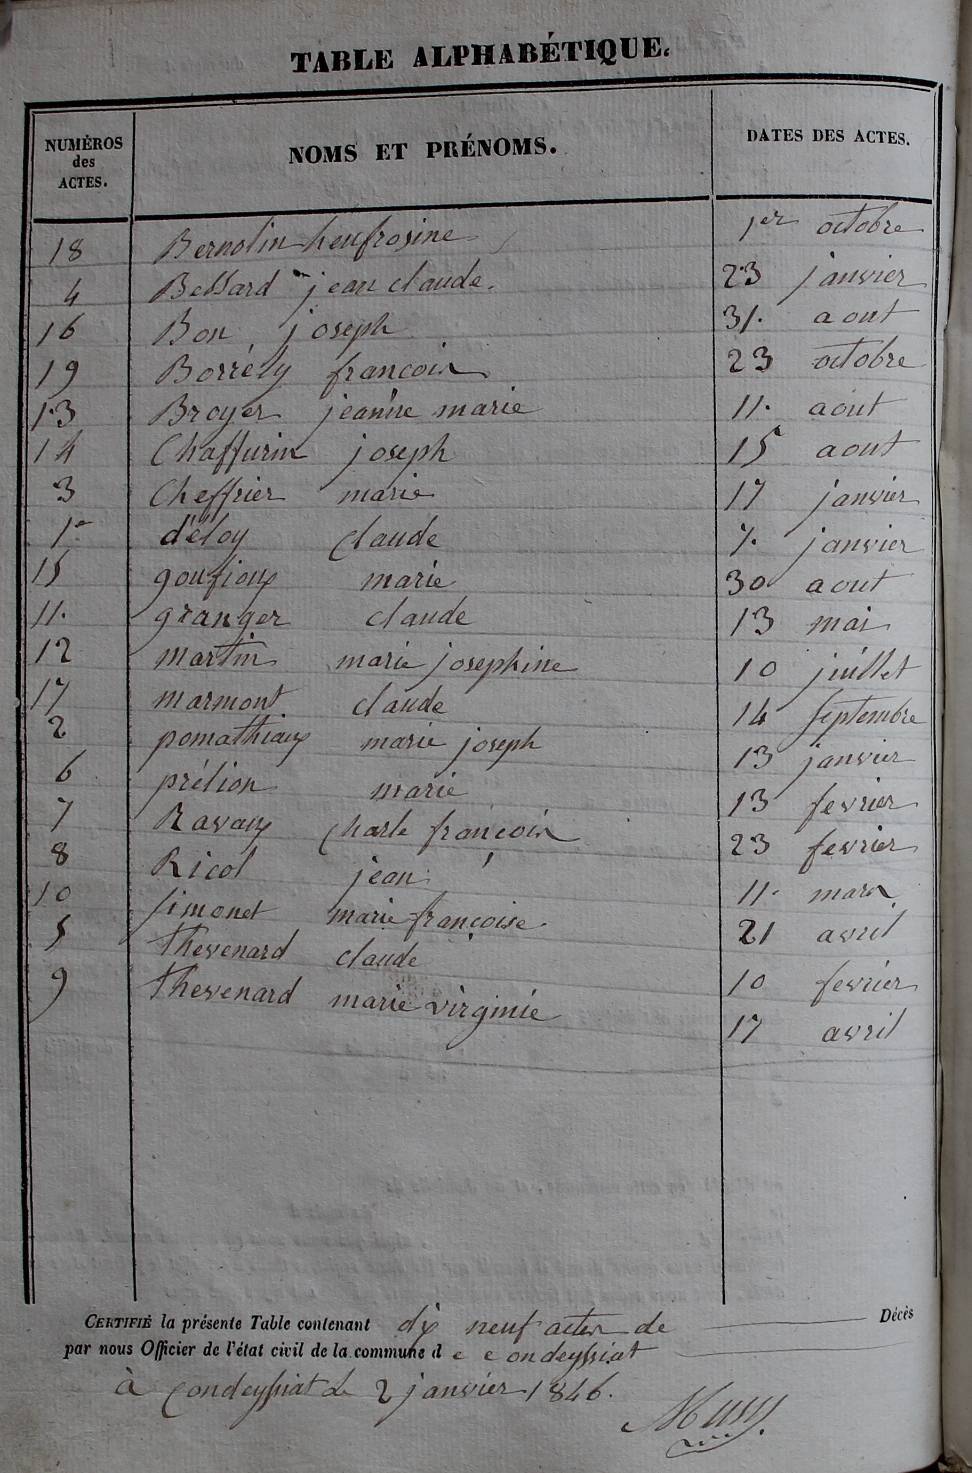 TABLE ALPHABÉTIQUE.
NUMÉROS des ACTES. NOMS ET PRÉNOMS. DATES DES ACTES.
18 Bernolin heufrosine 1er octobre
4 Bellard jean claude. 23 janvier
16 Bon joseph 31. aout
19 Borrély francois 23 octobre
13 Broyer jeanne marie 11. aout
14 Chaffurin joseph 15 aout
3 Cheffrier marie 17 janvier
1er déloy claude 7. janvier
15 goufioux marie 30 aout
11. granger claude 13 mai
12 martin marie josephine 10 juillet
17 marmont claude 14 septembre
2 pomathiaux marie joseph 13 janvier
6 prélion marie 13 fevrier
7 Ravaux charle françois 23 fevrier
8 Ricol jean 11. mars
10 simonet marie françoise. 21 avril
5 thevenard claude 10 fevrier
9 thevenard marie virginie 17 avril
CERTIFIÉ la présente Table contenant dix neuf actes de Décès
par nous Officier de l'état civil de la commune de condeyssiat
à condeyssiat le 2 janvier 1846.